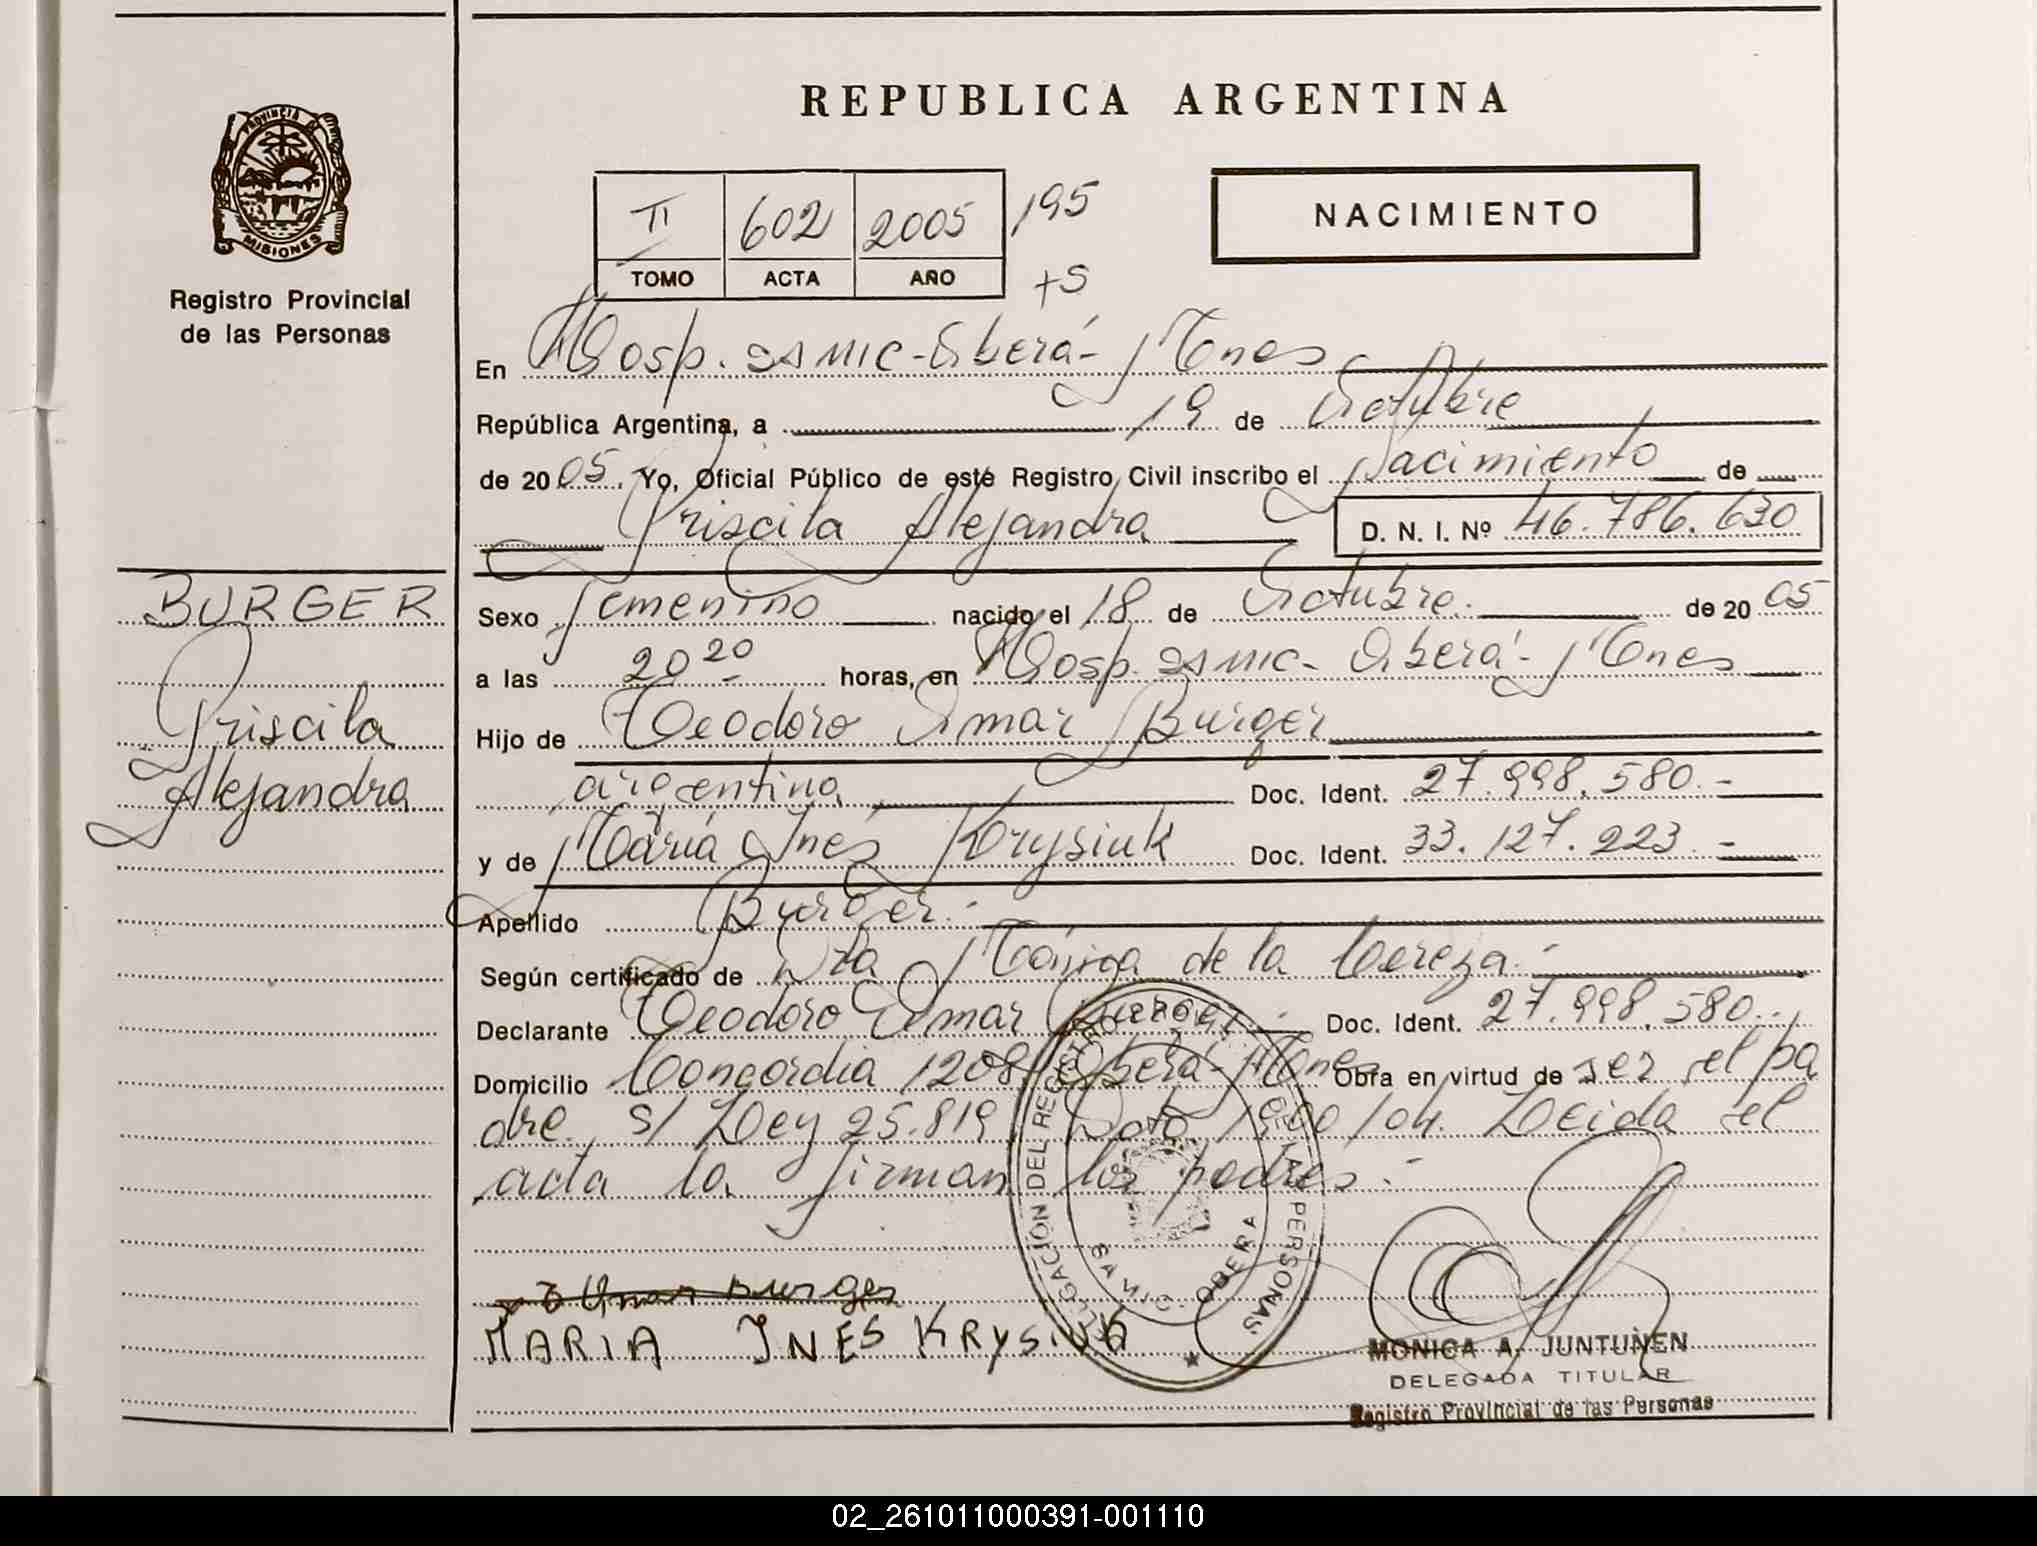 REPUBLICA ARGENTINA
PROVINCIA DE
MISIONES
Registro Provincial
de las Personas
II 602 2005 195
TOMO ACTA AÑO
+S
NACIMIENTO
En Hosp. SAMIC - Oberá - Mnes
República Argentina, a 19 de Octubre
de 2005. Yo, Oficial Público de este Registro Civil inscribo el Nacimiento de
Priscila Alejandra D. N. I. Nº 46.786.630
BURGER
Priscila
Alejandra
Sexo femenino nacido el 18 de Octubre. de 2005
a las 20 20 horas, en Hosp. SAMIC - Oberá - Mnes
Hijo de Teodoro Omar Burger
argentina Doc. Ident. 27.998.580.-
y de María Inés Krysiuk Doc. Ident. 33.127.223.-
Apellido Burger.-
Según certificado de Dra Mónica de la Cereza.-
Declarante Teodoro Omar Burger.- Doc. Ident. 27.998.580.-
Domicilio Concordia 1208 Oberá - Mnes Obra en virtud de ser el pa
dre. s/ Ley 25.819 Dcto 1900/04. Leida el
acta la firman los padres.-
Omar Burger
MARIA INES KRYSIUK
DELEGACIÓN DEL REGISTRO PROVINCIAL DE LAS PERSONAS
SAMIC - OBERA
MONICA A. JUNTUNEN
DELEGADA TITULAR
Registro Provincial de las Personas
02_261011000391-001110